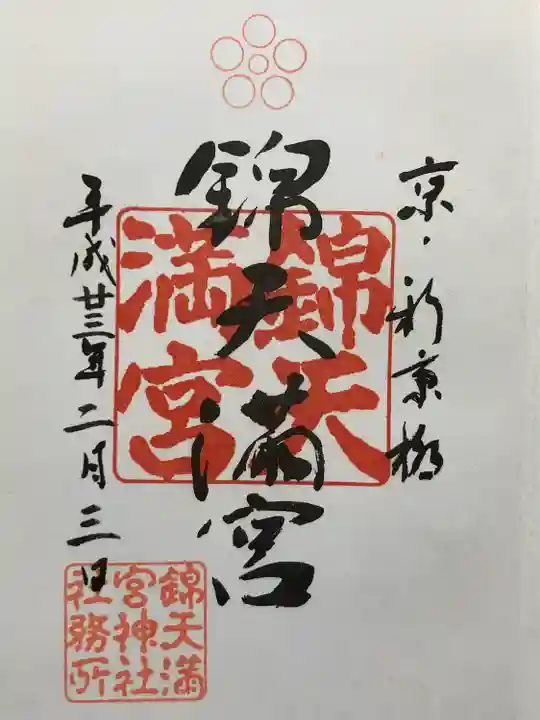 京・新京極
錦天満宮
平成廿三年二月三日
錦天
満宮
錦天満
宮神社
社務所